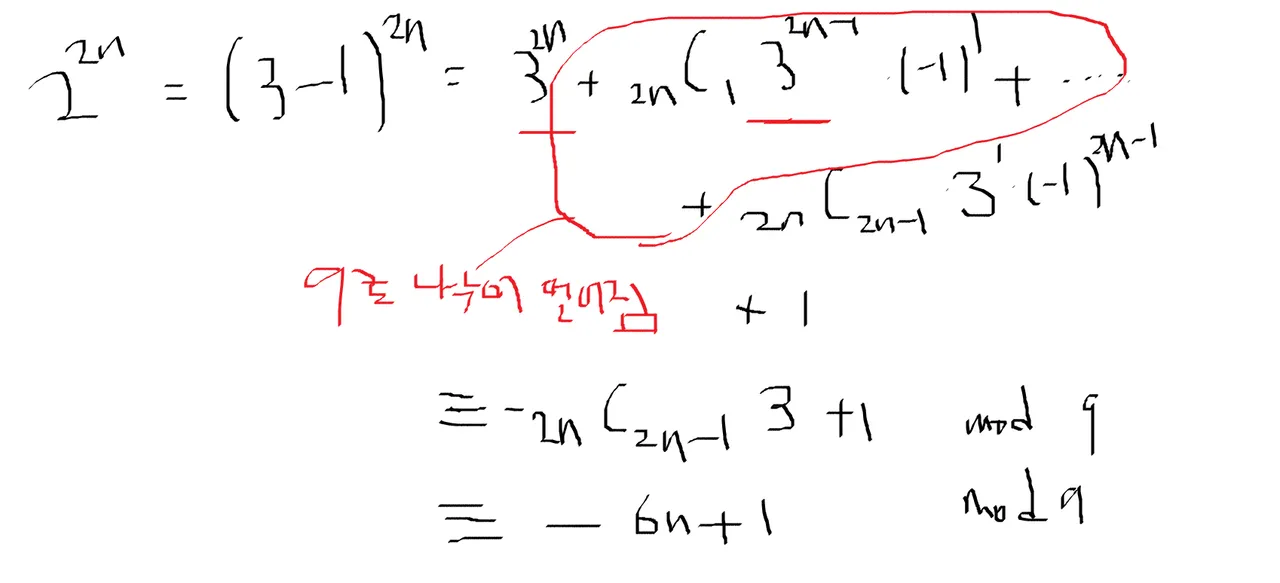 2^{2n} = (3-1)^{2n} = 3^{2n} + _{2n}C_1 3^{2n-1} (-1)^1 + ⋯⋯
+ _{2n}C_{2n-1} 3^1 · (-1)^{2n-1}
9로 나누어 떨어짐
+ 1
≡ -_{2n}C_{2n-1} 3 + 1 mod 9
≡ - 6n + 1 mod 9